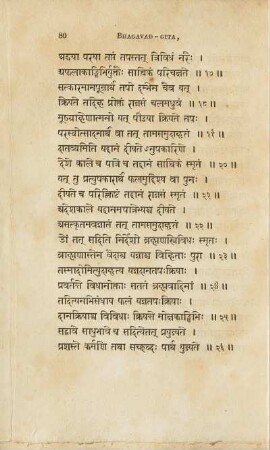 80 BHAGAVAD-GITA,
श्रद्धया परया तप्तं तपस्तत् त्रिविधं नरैः ।
अफलाकाङ्क्षिभिर्युक्तैः सात्विकं परिचक्षते ॥ १७ ॥
सत्कारमानपूजार्थं तपो दम्भेन चैव यत् ।
क्रियते तदिह प्रोक्तं राजसं चलमध्रुवं ॥ १८ ॥
मूढग्राहेणात्मनो यत् पीडया क्रियते तपः ।
परस्योत्सादनार्थं वा तत् तामसमुदाहृतं ॥ १९ ॥
दातव्यमिति यद्दानं दीयते ऽनुपकारिणे ।
देशे काले च पात्रे च तद्दानं सात्विकं स्मृतं ॥ २० ॥
यत् तु प्रत्युपकारार्थं फलमुद्दिश्य वा पुनः ।
दीयते च परिक्लिष्टं तद्दानं राजसं स्मृतं ॥ २१ ॥
अदेशकाले यद्दानमपात्रेभ्यश्च दीयते ।
असत्कृतमवज्ञातं तत् तामसमुदाहृतं ॥ २२ ॥
ॐ तत् सदिति निर्देशो ब्रह्मणस्त्रिविधः स्मृतः ।
ब्राह्मणास्तेन वेदाश्च यज्ञाश्च विहिताः पुरा ॥ २३ ॥
तस्मादोमित्युदाहृत्य यज्ञदानतपःक्रियाः ।
प्रवर्तन्ते विधानोक्ताः सततं ब्रह्मवादिनां ॥ २४ ॥
तदित्यनभिसंधाय फलं यज्ञतपःक्रियाः ।
दानक्रियाश्च विविधाः क्रियन्ते मोक्षकाङ्क्षिभिः ॥ २५ ॥
सद्भावे साधुभावे च सदित्येतत् प्रयुज्यते ।
प्रशस्ते कर्मणि तथा सच्छब्दः पार्थ युज्यते ॥ २६ ॥